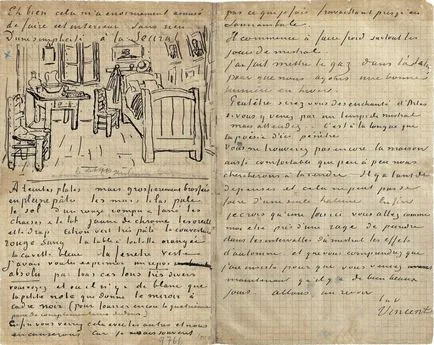 Eh bien cela m'a enormement amusé
de faire cet interieur sans rien
d'une simplicité à la Seurat
A teintes plates mais grossierement brossées
en pleine pâte les murs lilas pale
le sol d'un rouge
les chaises & le lit jaune de chrome les oreillers
et le drap citron vert très pâle la couverture
rouge sang la table à toilette orangée
la cuvette bleue la fenetre verte
j'avais voulu exprimer un repos
absolu par tous ces tons très divers
vous voyez et où il n'y a de blanc que
la petite note que donne le miroir à
cadre noir (pour fourrer encore la quatrieme
paire de complementaires dedans)
Enfin vous verrez cela avec les autres et nous
en causerons car je sais souvent
pas ce que je fais travaillant presqu'en
somnambule
Il commence à faire froid surtout les
jours de mistral
J'ai fait mettre le gaz dans
pour que nous ayons une bonne
lumiere en hiver
Peutêtre serez vous desenchanté d'Arles
si vous y venez par un temps de mistral
mais attendez. C'est à la longue que
la poésie d'ici pénètre
vous ne trouverez pas encore la maison
aussi comfortable que peu à peu nous
chercherons à la rendre Il y a tant de
depenses et cela ne peut pas se
faire d'une seule haleine Enfin
je crois qu'une fois ici vous allez comme
moi etre pris d'une rage de peindre
dans les intervalles du mistral les effets
d'automne et que vous comprendrez que
j'ai insisté pour que vous venez
maintenant qu'il y a de bien beaux
jours allons au revoir
t. à v.
Vincent